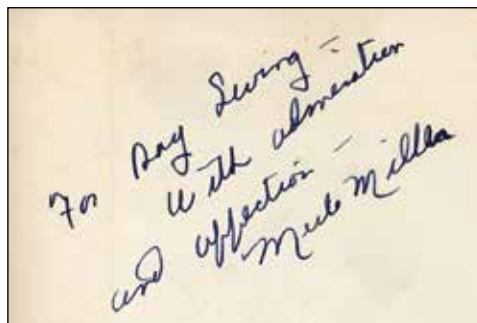 For Ray Swing –
With admiration
and affection –
Merle Miller